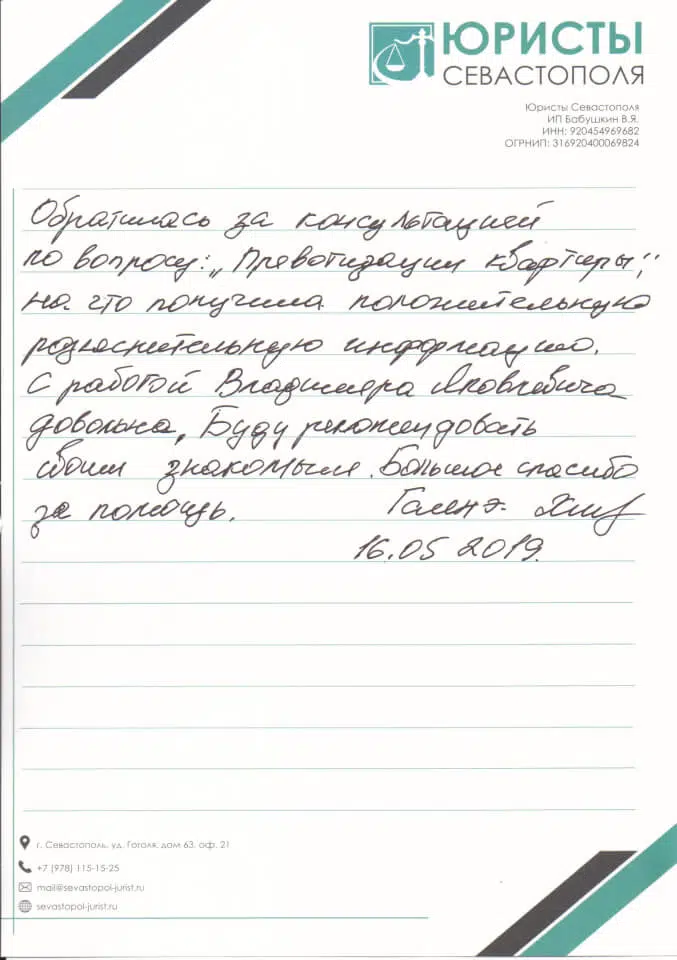 ЮРИСТЫ
СЕВАСТОПОЛЯ
Юристы Севастополя
ИП Бабушкин В.Я.
ИНН: 920454969682
ОГРНИП: 316920400069824
Обратилась за консультацией
по вопросу: „Преватизации квартиры",
на что получила положительную
разъяснительную информацию.
С работой Владимира Яковлевича
довольна, Буду рекомендовать
своим знакомым. Большое спасибо
за помощь.
16.05 2019.
г. Севастополь, уд. Гоголя, дом 63, оф. 21
+7 (978) 115-15-25
mail@sevastopol-jurist.ru
sevastopol-jurist.ru